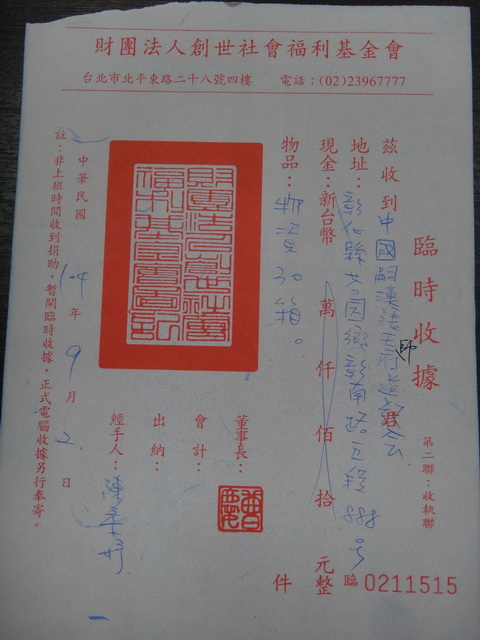 財團法人創世社會福利基金會
台北市北平東路二十八號四樓 電話：(02)23967777
臨時收據
第二聯：收執聯
臨 0211515
茲收到中國嗣漢張天師道教會 君
地址：彰化縣芬園鄉彰南路五段888號
現金：新台幣 萬 仟 佰 拾 元整
物品：物資30箱。 件
董事長：
會計：
出納：
經手人：
中華民國 104 年 9 月 2 日
註：非上班時間收到捐助，暫開臨時收據，正式電腦收據另行奉寄。